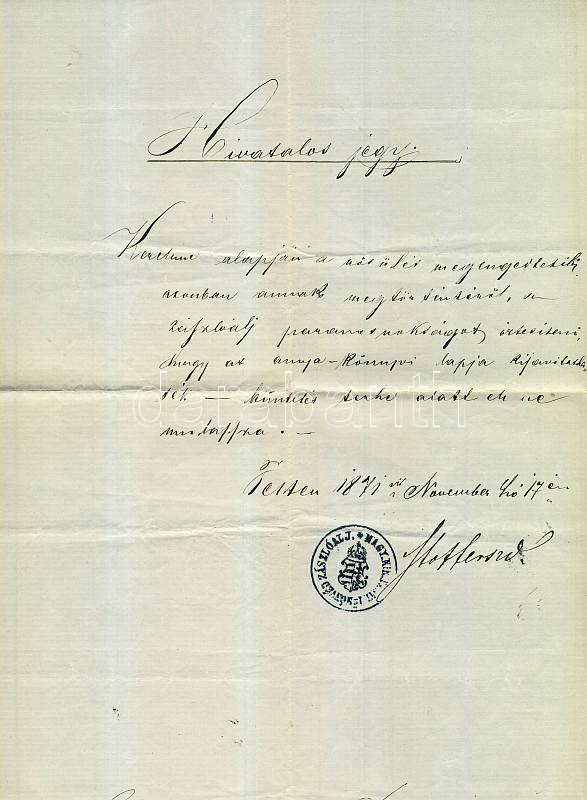 Hivatalos jegy.
Kérelme alapján a nősülés megengedtetik,
azonban annak megtörténtéről, a
zászlóalj parancsnokságot értesíteni,
hogy az anya-könyvi lapja kijavítatas-
sék — büntetés terhe alatt el ne
mulassza. —
1871 November hó 17 én
ZÁSZLÓALJ. * MAGY. KIR.
darabanth